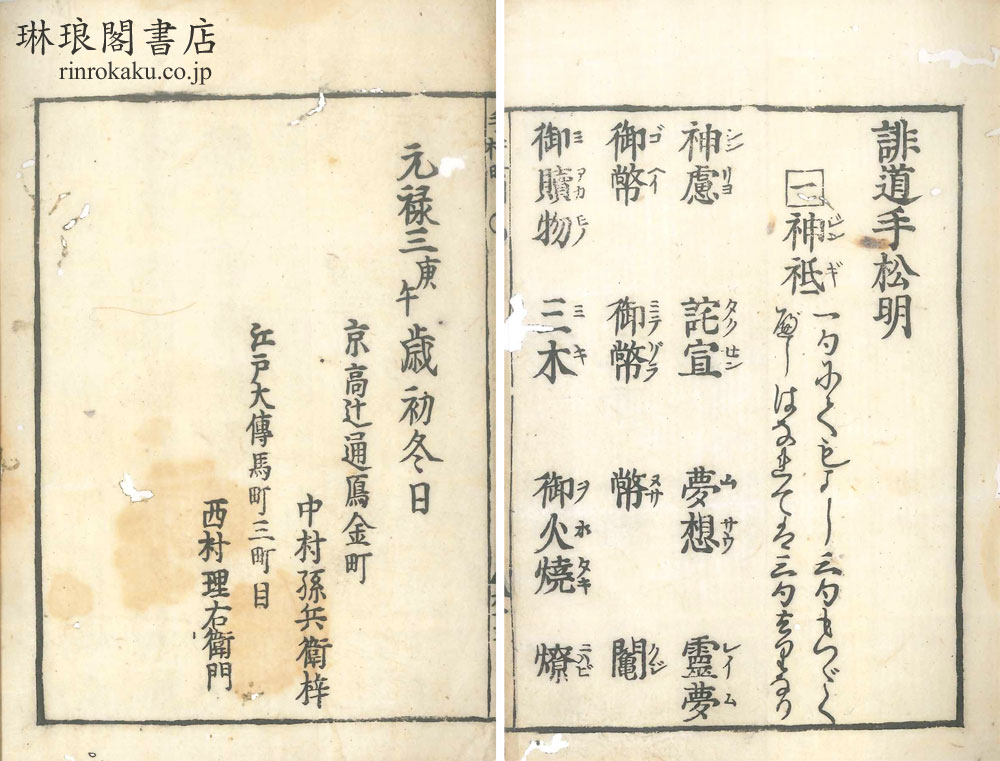 琳琅閣書店
rinrokaku.co.jp
誹道手松明
一 神祇 一句にても よし 三句もつゞく
べし はなれては三句去なり
神慮 託宣 夢想 靈夢
シンリヨ タクセン ムサウ レイム
御幣 御幣 幣 鬮
ゴヘイ ミテグラ ヌサ クジ
御贖物 三木 御火焼 燎
ミアカモノ ミキ ヲホタキ ニハビ
元禄三庚午歳初冬日
京高辻通鴈金町
中村孫兵衛梓
江戸大傳馬町三町目
西村理右衛門